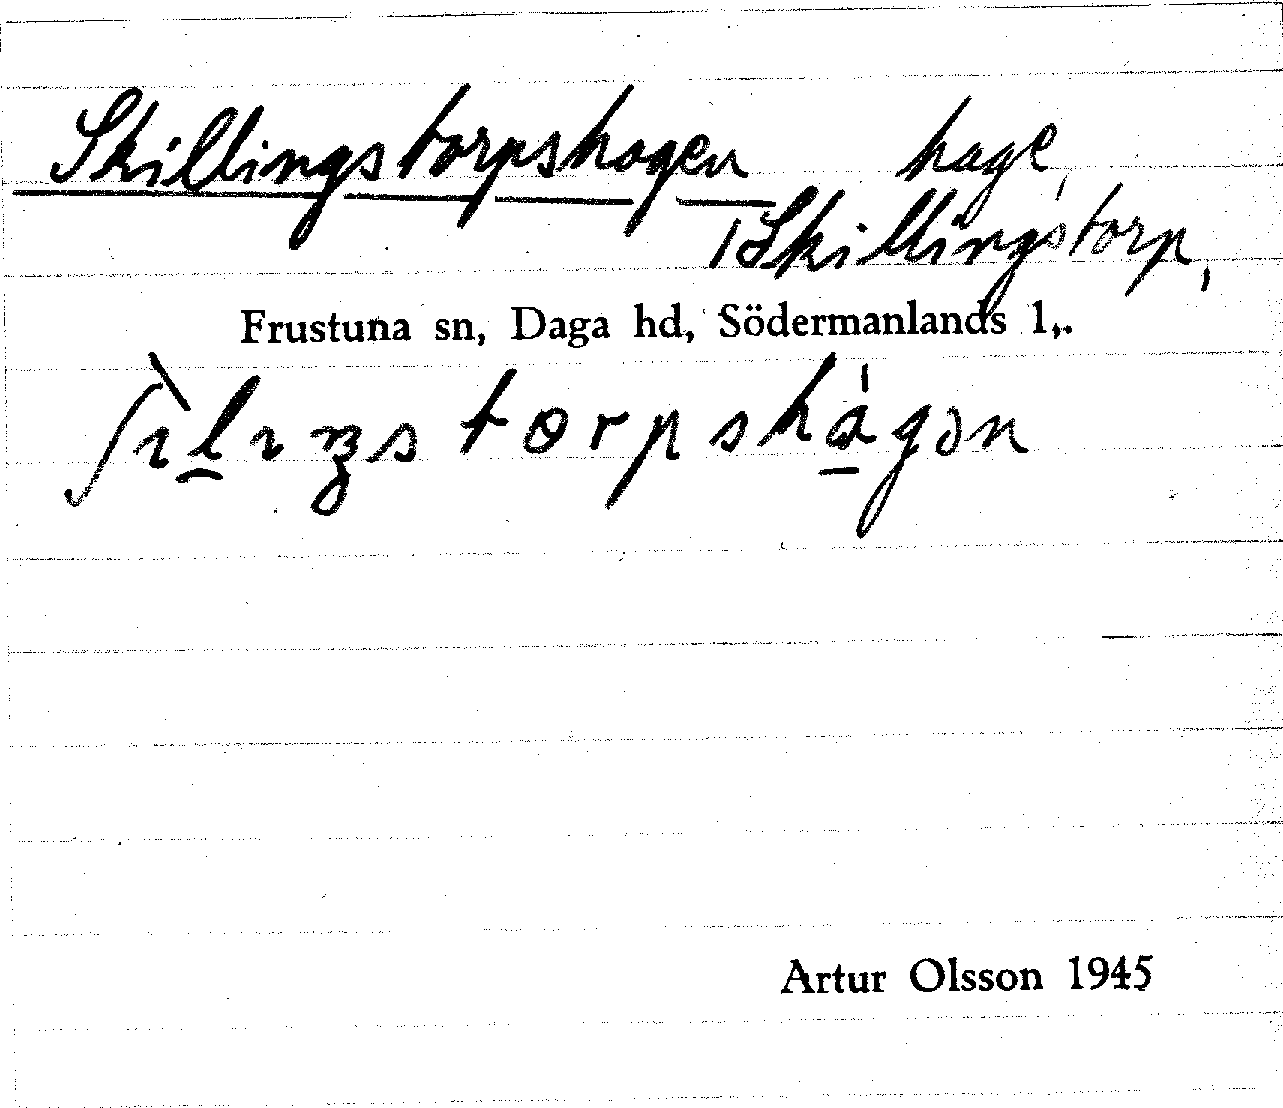 Skillingstorpshagen hage,
/ Skillingstorp,
Frustuna sn, Daga hd, Södermanlands l,.
ʃìl̠ıŋstorpshá̠gən
Artur Olsson 1945